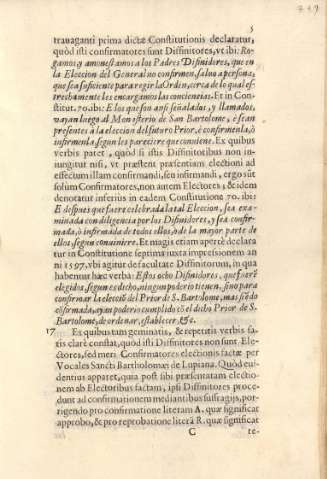 5
trauaganti prima dictæ Constitutionis declaratur,
quòd isti confirmatores sunt Diffinitores, vt ibi: Ro-
gamos y amonestamos a los Padres Difinidores, que en
la Eleccion del General no confirmen, saluo a persona,
que sea suficiente para regir la Orden, cerca de lo qual es-
trechamente les encargamos las conciencias. Et in Con-
stitut. 70. ibi: E los que son assi señalados, y llamados,
vayan luego al Monesterio de San Bartolome, e sean
presentes à la eleccion del futuro Prior, è confirmenla, ò
infirmenla segun les pareciere que conuiene. Ex quibus
verbis patet, quòd si istis Diffinitoribus non in-
iungitur nisi, vt præstent præsentiam electioni ad
effectum illam confirmandi, seu infirmandi, ergo sũt
solùm Confirmatores, non autem Electores, & idem
denotatur inferius in eadem Constitutione 70. ibi:
E despues que fuere celebrada la tal Eleccion, sea exa-
minada con diligencia por los Difinidores, y sea confir-
mada, ò infirmada de todos ellos, ò de la mayor parte de
ellos segun conuiniere. Et magis etiam apertè declara
tur in Constitutione septima iuxta impressionem an
ni 1597. vbi agitur de facultate Diffinitorum, in qua
habentur hæc verba: Estos ocho Difinidores, que fuerẽ
elegidos, segun es dicho, ningun poder io tienen, sino para
confirmar la elecciõ del Prior de S. Bartolome, mas siẽdo
cõfirmado, ayan poderio cumplido cõ el dicho Prior de S.
Bartolome, de ordenar, establecer, &c.
17 Ex quibus tam geminatis, & repetitis verbis sa-
tis clarè constat, quòd isti Diffinitores non sunt Ele-
ctores, sed meri Confirmatores electionis factæ per
Vocales Sancti Bartholomæi de Lupiana. Quòd eui-
dentius apparet, quia post sibi præsentatam electio-
nem ab Electoribus factam, ipsi Diffinitores proce-
dunt ad confirmationem mediantibus suffragijs, por-
rigendo pro confirmatione literam A. quæ significat
approbo, & pro reprobatione literã R. quæ significat
C re-